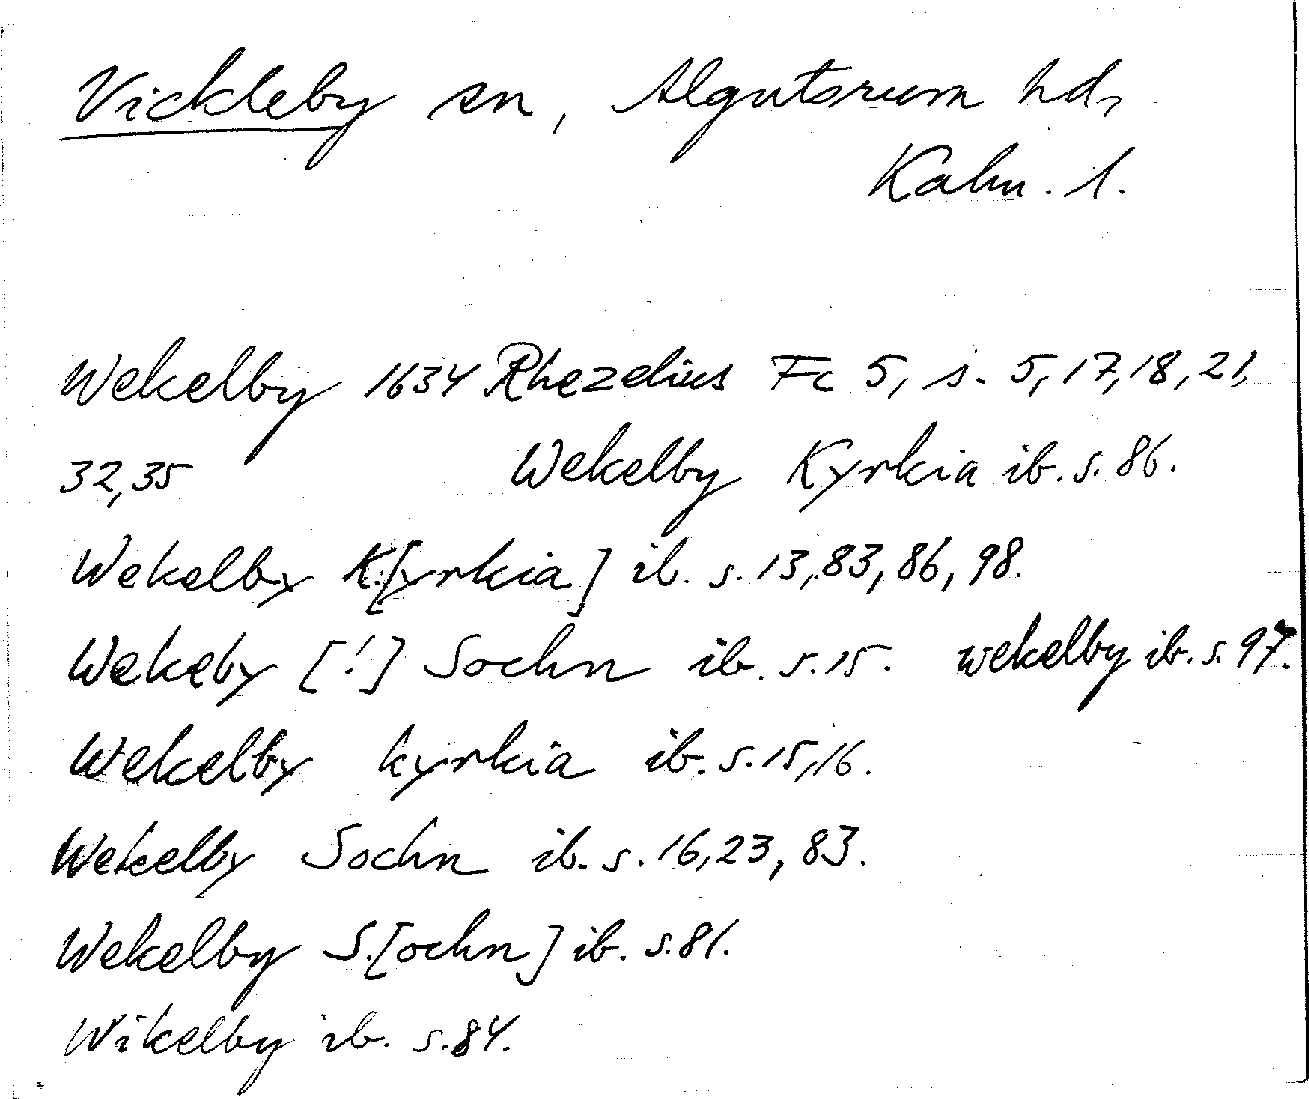 Vickleby sn, Algutsrum hd,
Kalm. l.
Wekelby 1634 Rhezelius Fc 5, s. 5, 17, 18, 21,
32, 35 Wekelby Kyrkia ib. s. 86.
Wekelby K.[yrkia] ib. s. 13, 83, 86, 98.
Wekeby [!] Sochn ib. s. 15. wekelby ib. s. 97.
Wekelby kyrkia ib. s. 15, 16.
Wekelby Sochn ib. s. 16, 23, 83.
Wekelby S.[ochn] ib. s. 81.
Wikelby ib. s. 84.